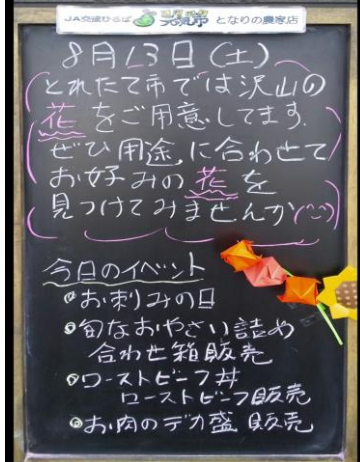 JA交流ひろば とれたて元気市 となりの農家店
8月13日(土)
とれたて市では沢山の
花をご用意してます。
ぜひ用途に合わせて
お好みの花を
見つけてみませんか
今日のイベント
お刺みの日
旬なおやさい詰め
合わせ箱販売
ローストビーフ丼
ローストビーフ販売
お肉のデカ盛 販売